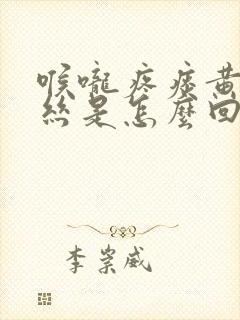 喉嚨疼痰黃
絲是怎麼回
李崇威